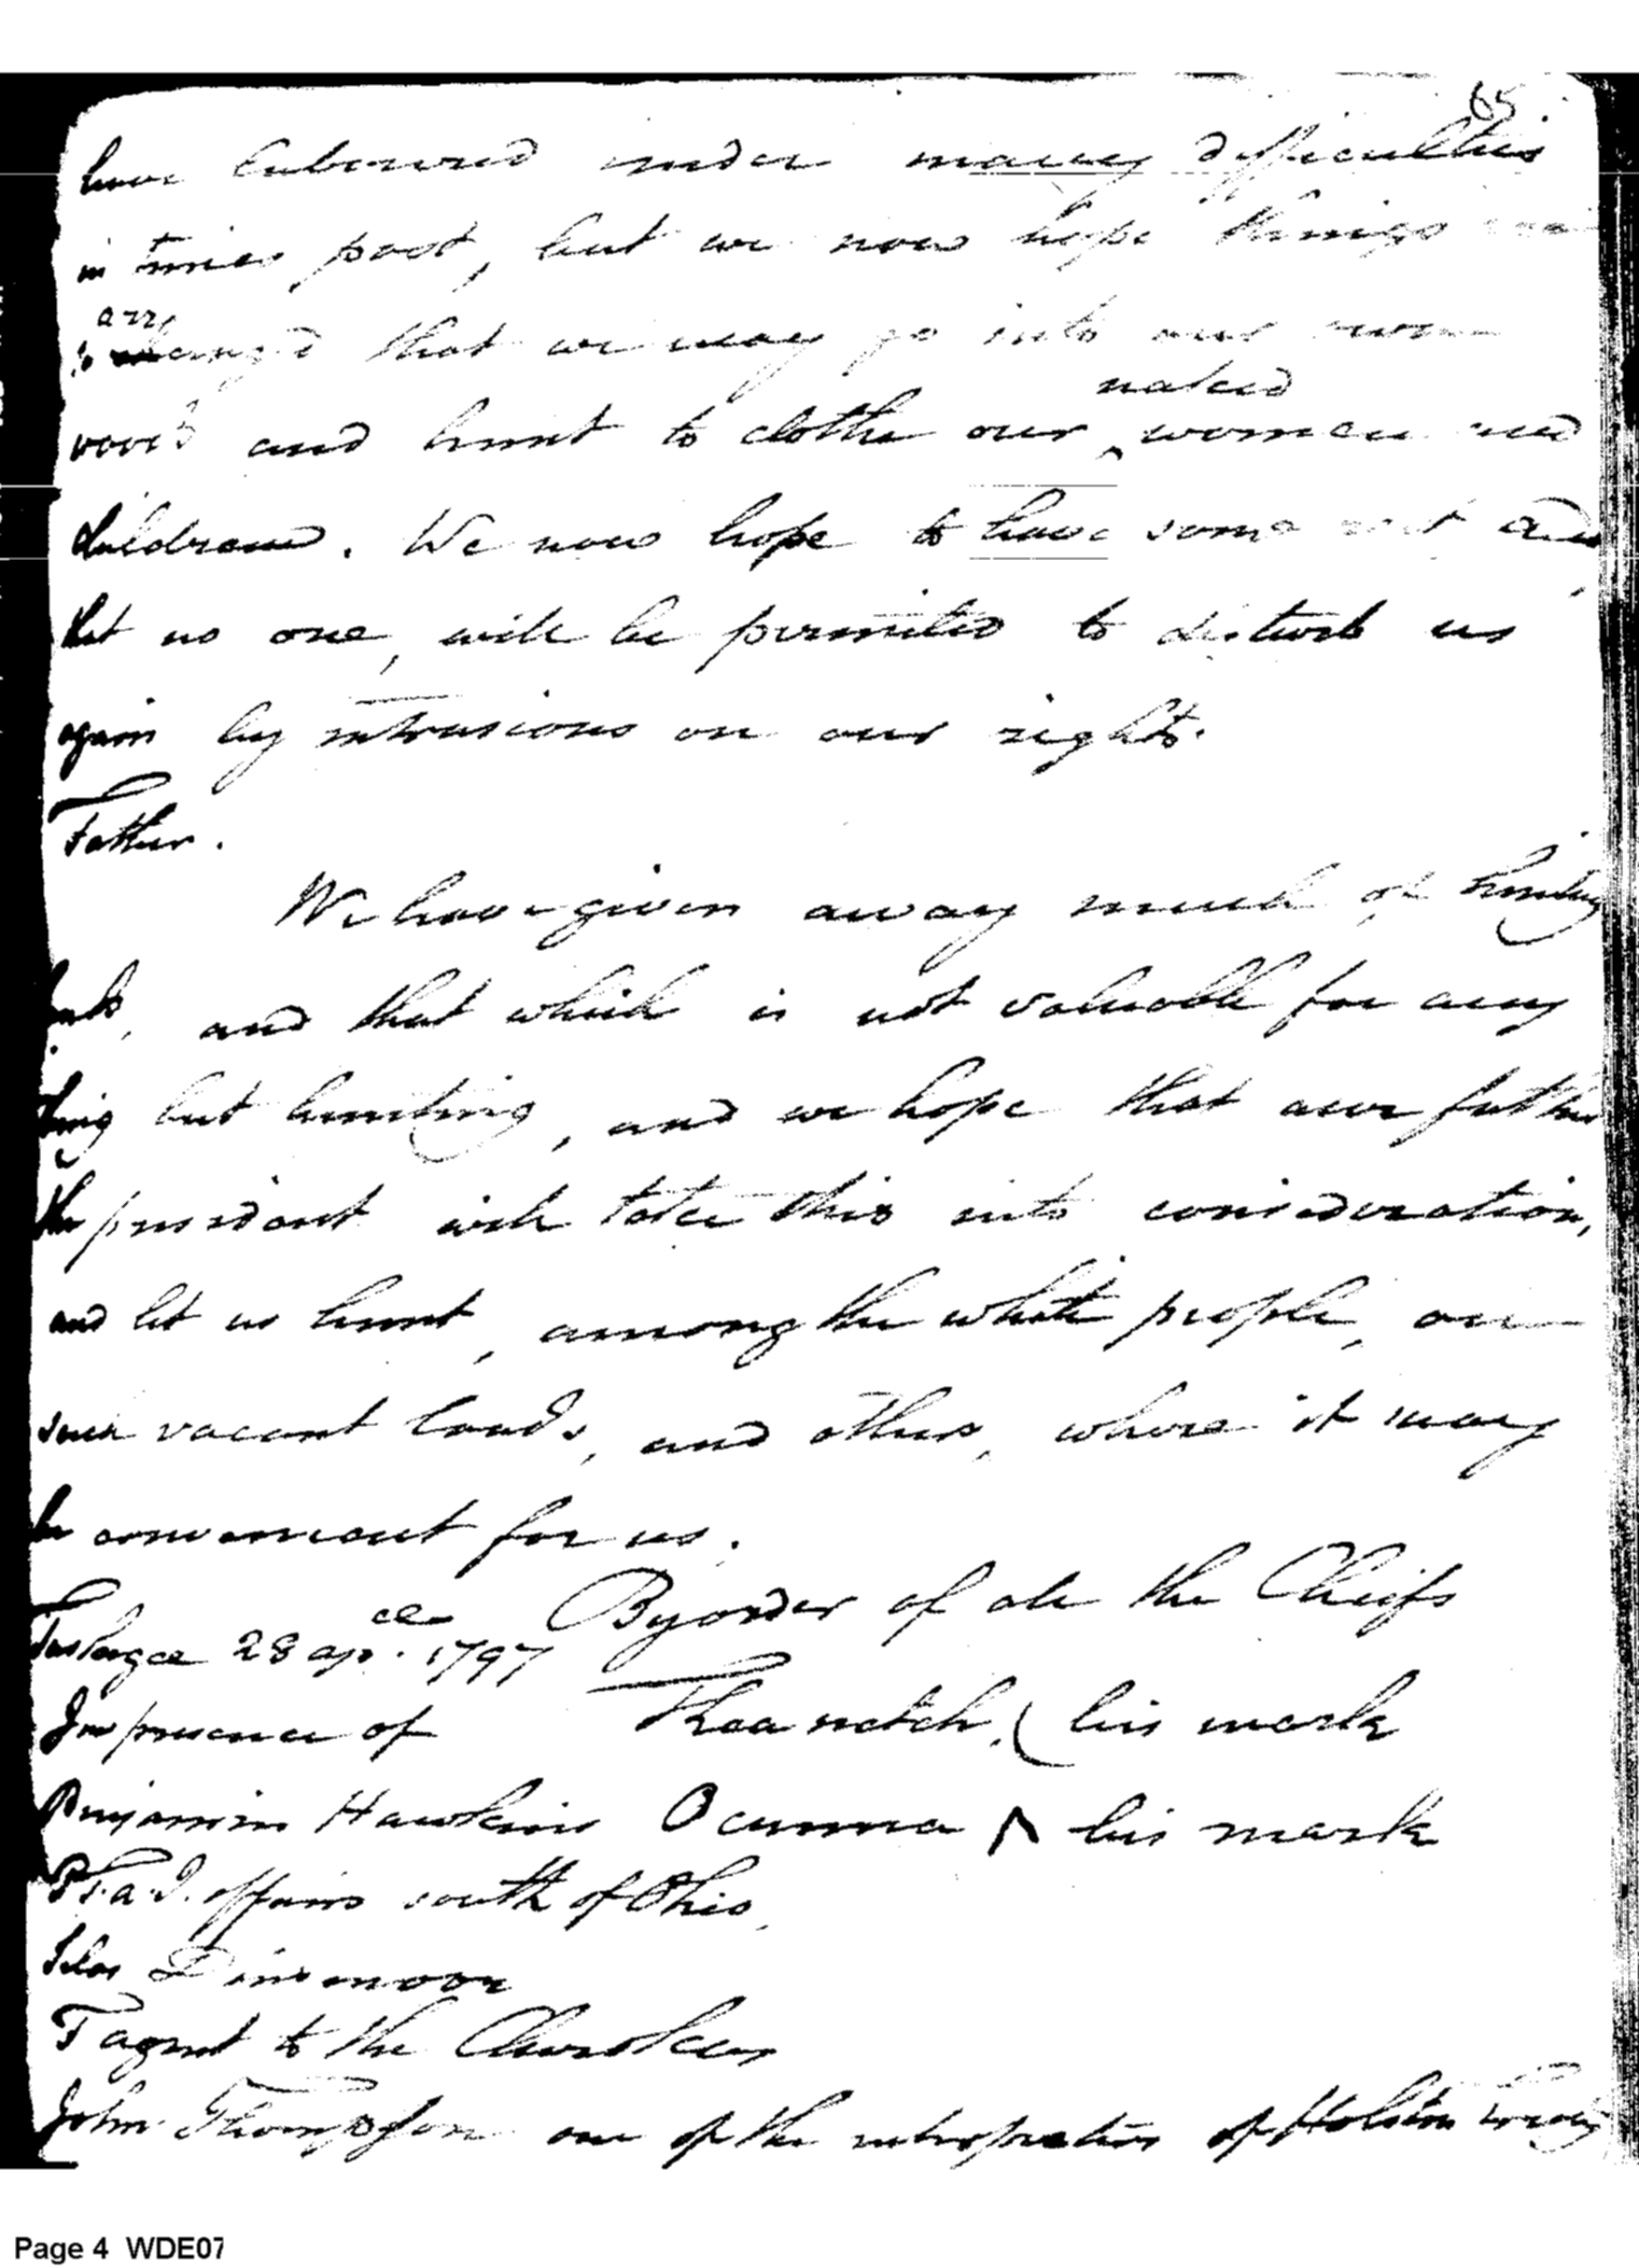 65
have laboured under many difficulties
in times past, but we now hope things
arr
so ang'd that we may go into our own
naked
woods and hunt to clothe our ^ women and
children. We now hope to have some rest and
that no one, will be permitted to disturb us
again by intrusions on our rights.
Father.
We have given away much of hunting
lands, and that which is not valuable for any
thing but hunting, and we hope that our father
the president will take this into consideration,
and let us hunt, among the white people, on
such vacant lands, and others, where it may
be convenient for us.
By order of all the Chiefs
28 ap. 1797
In presence of Kaanatch, ( his mark
Benjamin Hawkins Ocunna ^ his mark
P. T. a. I. affairs south of Ohio,
Silas Dinsmoor
T agent to the Cherokees
John Thompson one of the interpreters of Holston treaty
Page 4 WDE07